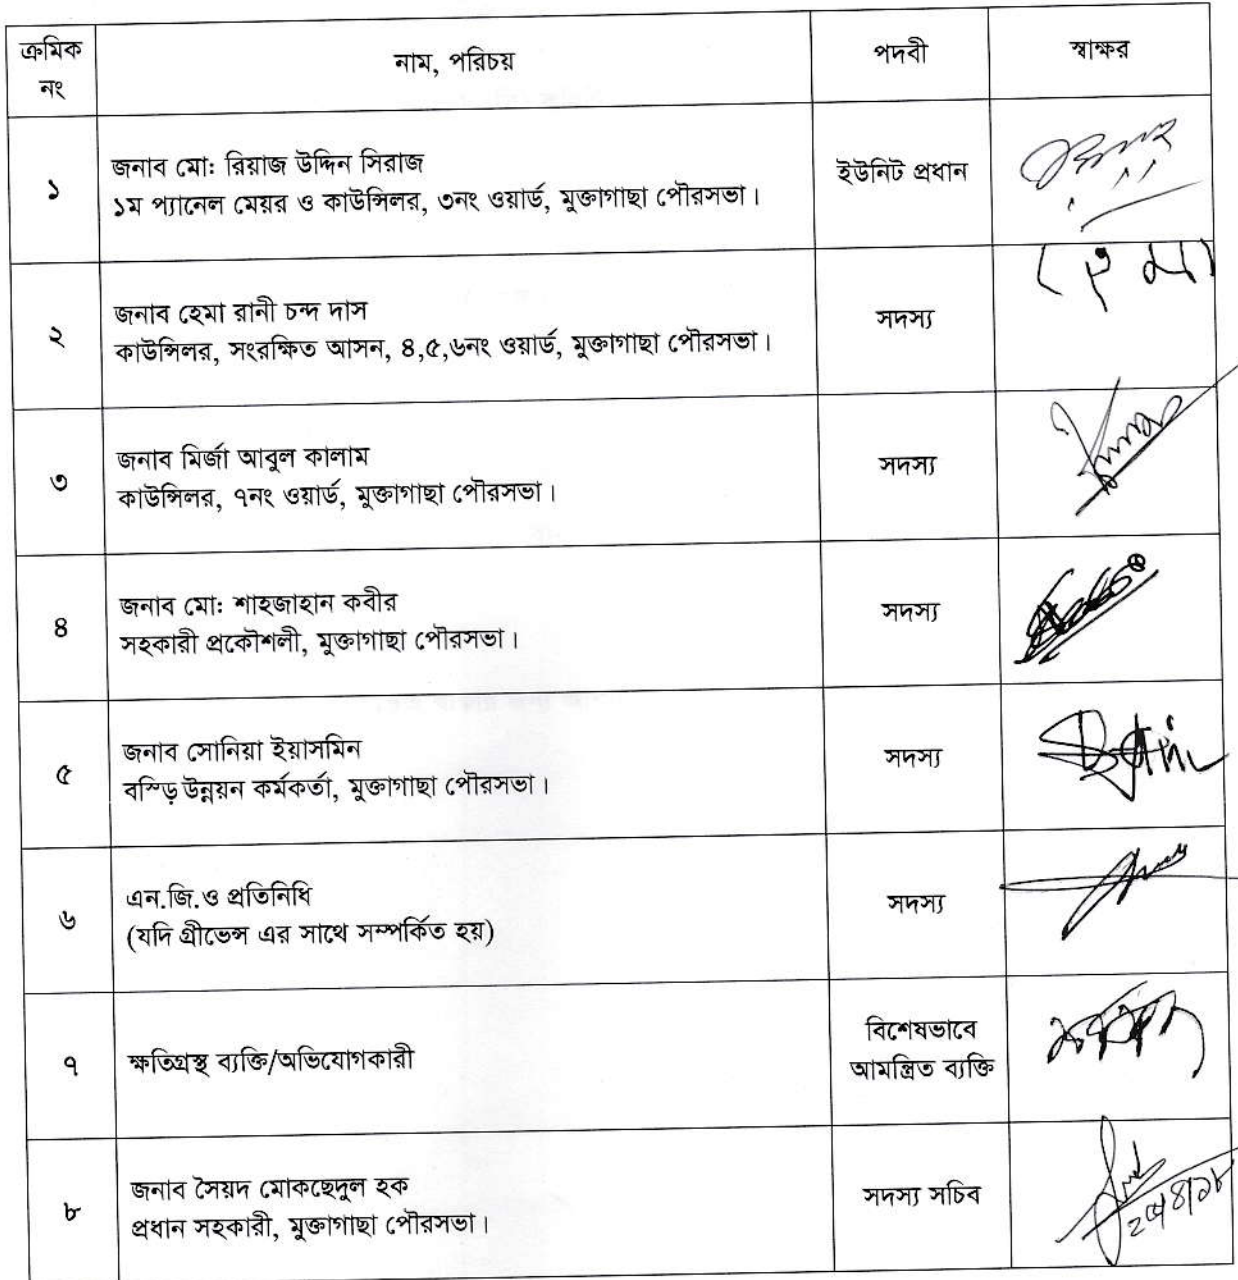 ক্রমিক নং
নাম, পরিচয়
পদবী
স্বাক্ষর
১
জনাব মো: রিয়াজ উদ্দিন সিরাজ
১ম প্যানেল মেয়র ও কাউন্সিলর, ৩নং ওয়ার্ড, মুক্তাগাছা পৌরসভা।
ইউনিট প্রধান
২
জনাব হেমা রানী চন্দ দাস
কাউন্সিলর, সংরক্ষিত আসন, ৪,৫,৬নং ওয়ার্ড, মুক্তাগাছা পৌরসভা।
সদস্য
৩
জনাব মির্জা আবুল কালাম
কাউন্সিলর, ৭নং ওয়ার্ড, মুক্তাগাছা পৌরসভা।
সদস্য
৪
জনাব মো: শাহজাহান কবীর
সহকারী প্রকৌশলী, মুক্তাগাছা পৌরসভা।
সদস্য
৫
জনাব সোনিয়া ইয়াসমিন
বস্ড়ি উন্নয়ন কর্মকর্তা, মুক্তাগাছা পৌরসভা।
সদস্য
৬
এন.জি.ও প্রতিনিধি
(যদি গ্রীভেন্স এর সাথে সম্পর্কিত হয়)
সদস্য
৭
ক্ষতিগ্রস্থ ব্যক্তি/অভিযোগকারী
বিশেষভাবে
আমন্ত্রিত ব্যক্তি
৮
জনাব সৈয়দ মোকছেদুল হক
প্রধান সহকারী, মুক্তাগাছা পৌরসভা।
সদস্য সচিব